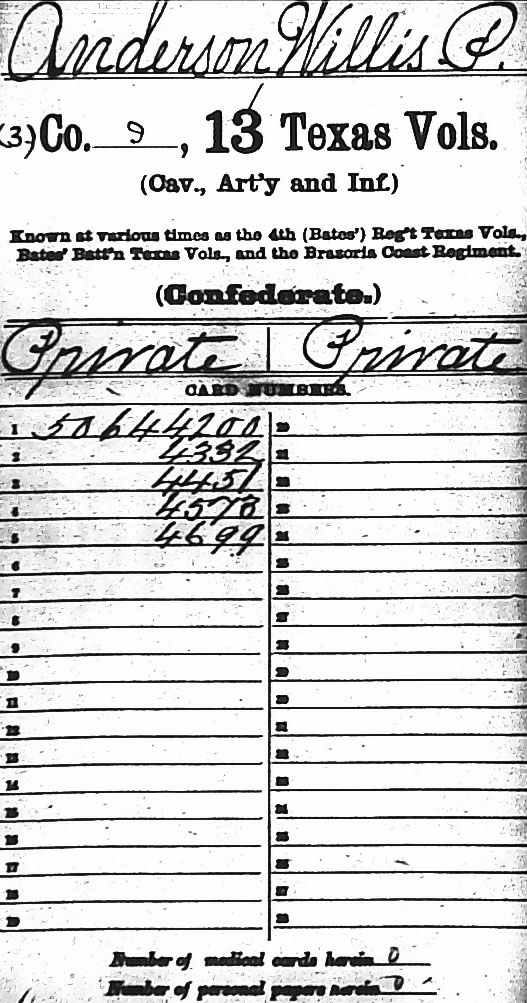 Anderson Willis P.
(3) Co. 9, 13 Texas Vols.
(Cav., Art'y and Inf.)
Known at various times as the 4th (Bates') Reg't Texas Vols.,
Bates' Batt'n Texas Vols., and the Brazoria Coast Regiment.
(Confederate.)
Private | Private
CARD NUMBERS.
1 50644200 20
2 4332 21
3 4451 22
4 4578 23
5 4699 24
6 25
7 26
8 27
9 28
10 29
11 30
12 31
13 32
14 33
15 34
16 35
17 36
18 37
19 38
Number of medical cards herein 0
Number of personal papers herein 0